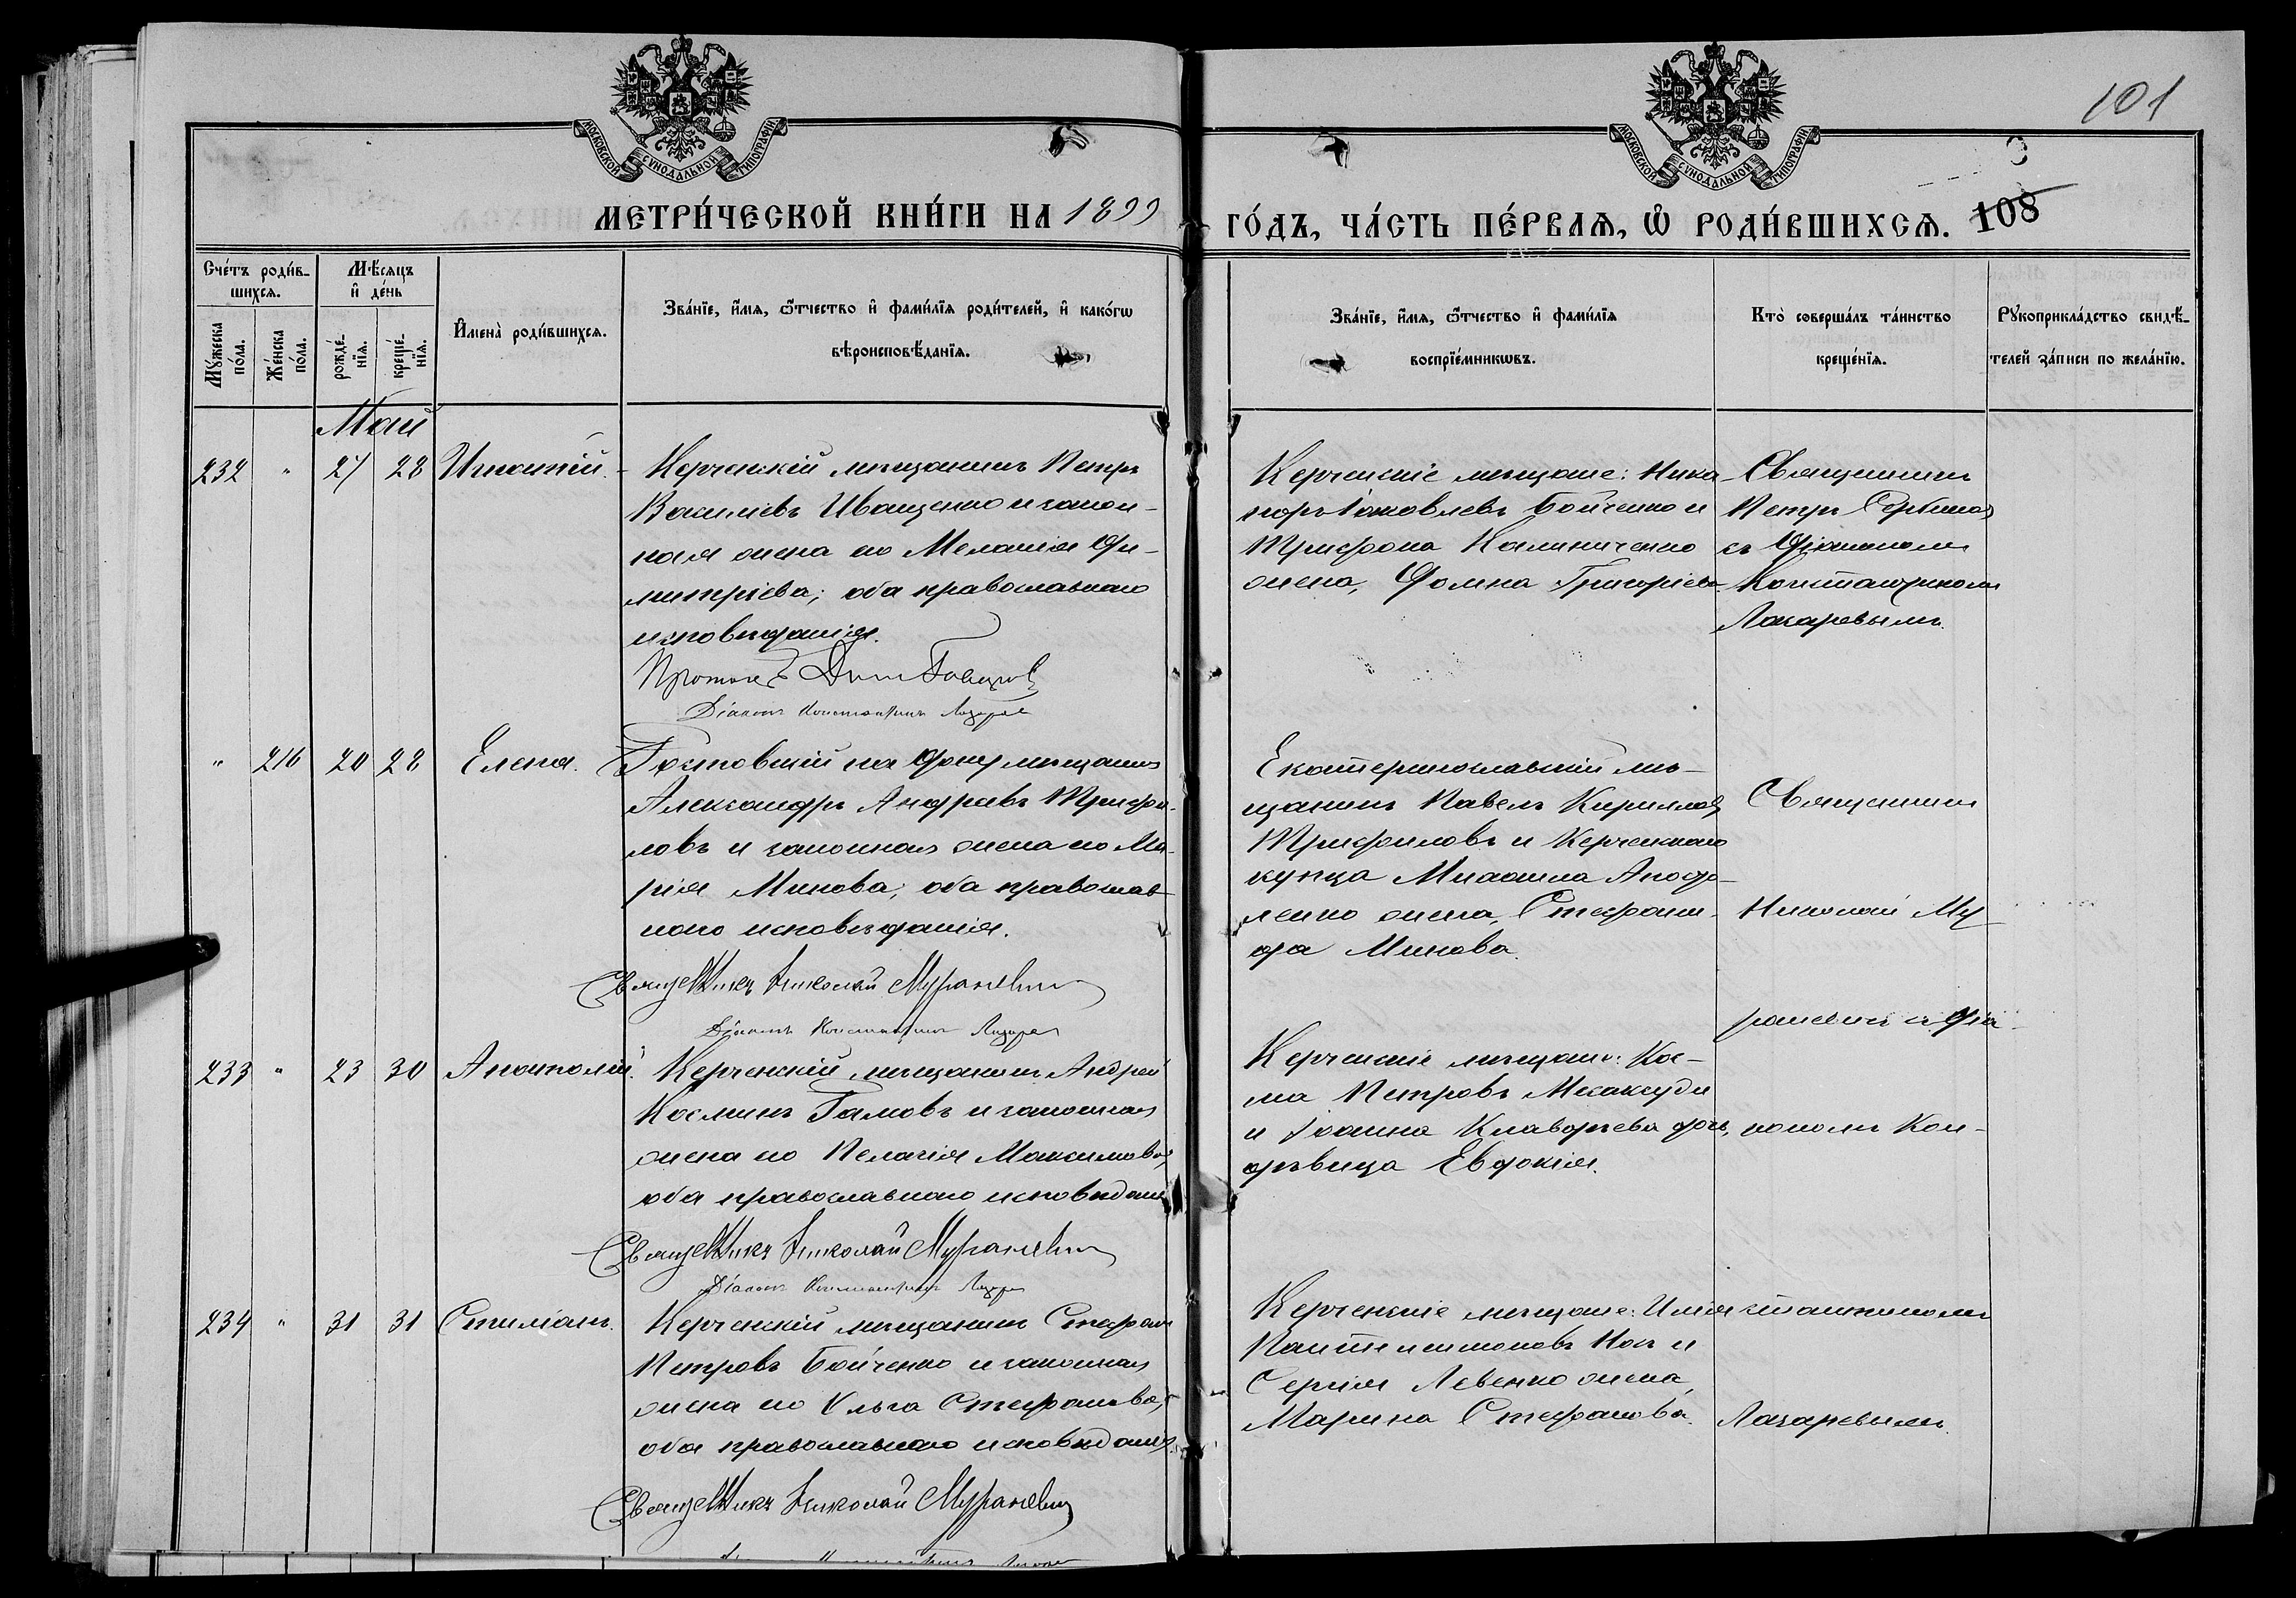 101
МОСКОВСКОЙ СѴНОДАЛЬНОЙ ТИПОГРАФІИ
МОСКОВСКОЙ СѴНОДАЛЬНОЙ ТИПОГРАФІИ
МЕТРИ́ЧЕСКОЙ КНИ́ГИ НА 1899 ГО́ДЪ, ЧА́СТЬ ПЕ́РВАѦ, Ѡ҆ РОДИ́ВШИХСѦ. 108
Сче́тъ роди́в-
шихсѧ.
Мꙋ́жеска
по́ла.
Же́нска
по́ла.
Мѣ́сѧцъ
и҆ де́нь
рожде́-
нїѧ.
креще́-
нїѧ.
И҆мена̀ роди́вшихсѧ.
Зва́нїе, и҆́мѧ, ѻ҆́тчество и҆ фами́лїѧ роди́телей, и҆ како́гѡ
вѣроисповѣ́данїѧ.
Зва́нїе, и҆́мѧ, ѻ҆́тчество и҆ фами́лїѧ
воспрїе́мникѡвъ.
Кто̀ соверша́лъ та́инство
креще́нїѧ.
Рꙋкоприкла́дство свидѣ́-
телей за́писи по жела́нїю.
Май
232 " 27 28 Игнатій.
Керченскій мѣщанинъ Петръ
Василіевъ Иващенко и закон-
ная жена его Меланія Ди-
митріева; оба православнаго
исповѣданія.
Діаконъ Константинъ Лазарев
Керченскіе мѣщане: Ника-
норъ Іаковлевъ Бойченко и
Трифона Калиниченко
жена, Домна Григоріева.
Священникъ
Петръ Сербинов
съ Діакономъ
Константиномъ
Лазаревымъ.
" 216 20 28 Елена.
Ростовскій на Дону мѣщанинъ
Александръ Андреевъ Трифи-
ловъ и законная жена его Ма-
рія Минова; оба православ-
наго исповѣданія.
Священникъ Николай Мураневич
Діаконъ Константинъ Лазарев
Екатеринославскій мѣ-
щанинъ Павелъ Кирилловъ
Трифиловъ и Керченскаго
купца Михаила
жена, Стефани-
да Минова.
Священникъ
Николай Му-
раневичъ съ Діа-
233 " 23 30 Анатолій.
Керченскій мѣщанинъ Андрей
Косминъ Гамовъ и законная
жена его Пелагія Максимова,
оба православнаго исповѣданія
Священникъ Николай Мураневич
Діаконъ Константинъ Лазарев
Керченскіе мѣщане: Кос-
ма Петровъ Мисаксуди
и Іоанна Клавдіева дочь,
дѣвица Евдокія.
кономъ Кон-
234 " 31 31 Стиліанъ.
Керченскій мѣщанинъ Стефанъ
Петровъ Бойченко и законная
жена его Ольга Стефанова,
оба православнаго исповѣданія.
Священникъ Николай Мураневич
Керченскіе мѣщане: Илія
Пантелеимоновъ Кох и
Сергія Левенко жена,
Марина Стефанова.
стантиномъ
Лазаревымъ.